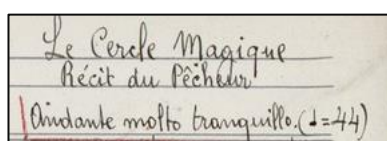 Le Cercle Magique
Récit du Pêcheur
Andante molto tranquillo. (♩=44)